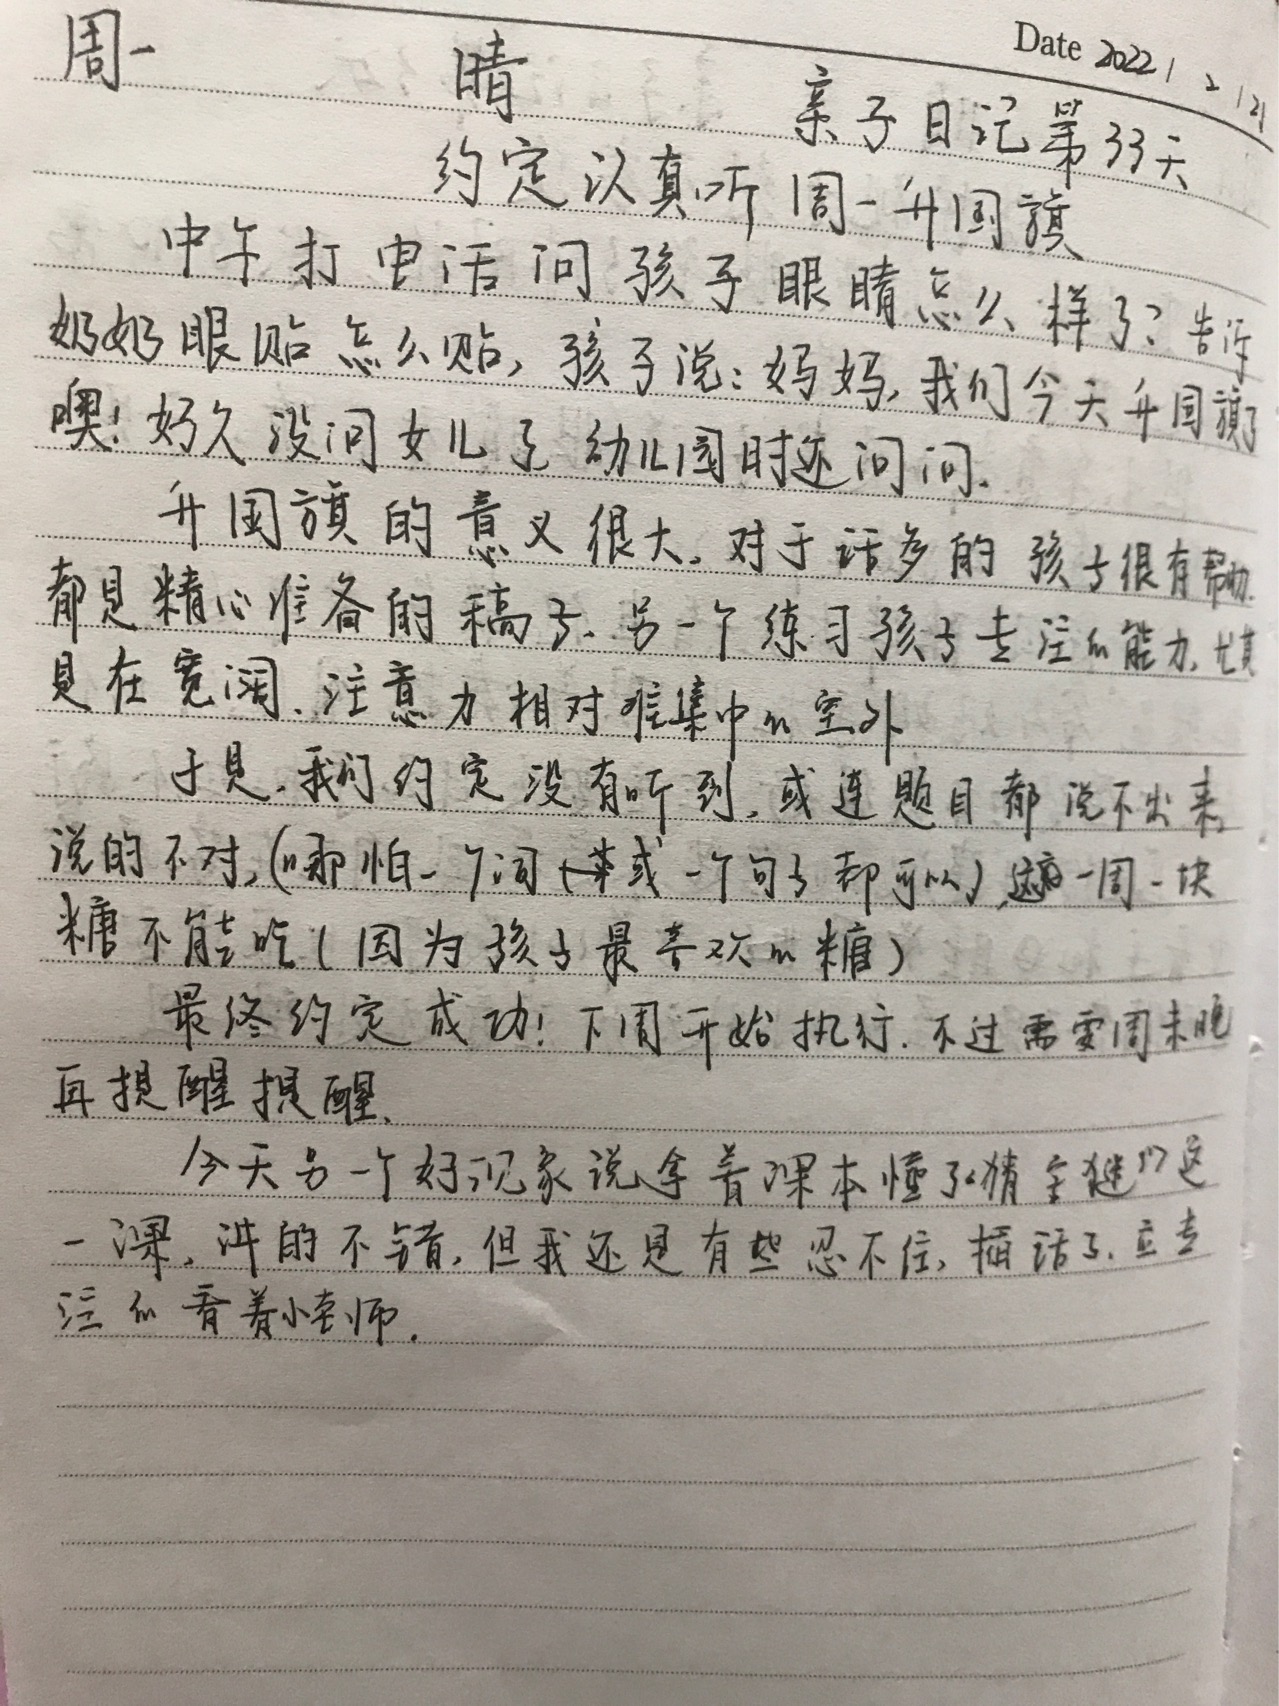 Date 2022/2/21
周一 晴 亲子日记第33天
约定认真听周一升国旗
中午打电话问孩子眼睛怎么样了?告诉
奶奶眼贴怎么贴,孩子说:妈妈,我们今天升国旗了
噢!好久没问女儿了幼儿园时还问问.
升国旗的意义很大,对于话多的孩子很有帮助.
都是精心准备的稿子.另一个练习孩子专注的能力,尤其
是在宽阔、注意力相对难集中的室外
于是,我们约定没有听到,或连题目都说不出来,
说的不对,(哪怕一个词 或一个句子都可以),一周一块
糖不能吃(因为孩子最喜欢的糖)
最终约定成功!下周开始执行.不过需要周末晚
再提醒提醒.
今天另一个好现象说拿着课本懂了“猜字谜”这
一课,讲的不错,但我还是有些忍不住,插话了.应专
注的看着小老师.